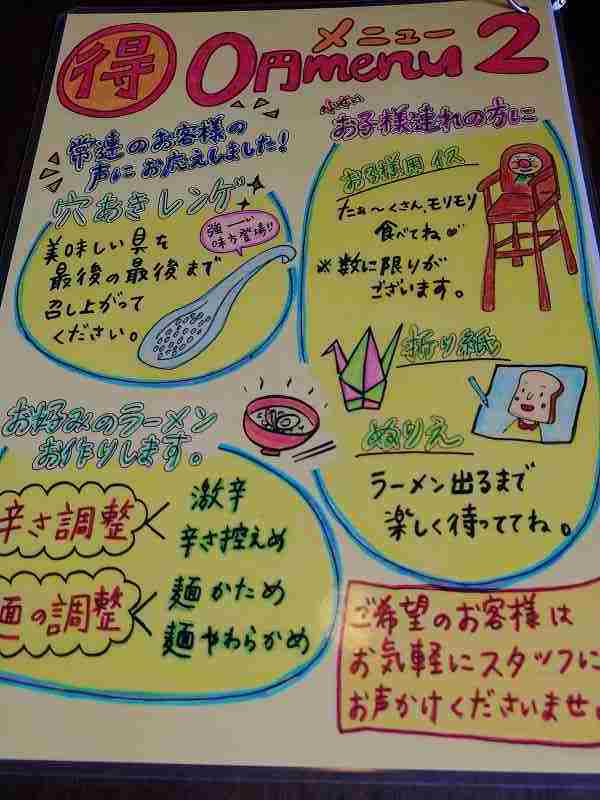 得 0円menu 2
メニュー
常連のお客様の
声にお応えしました!
穴あきレンゲ
美味しい具を
最後の最後まで
召し上がって
ください。
強ーい
味方登場!!
お子様連れの方に
お子様用イス
たぁ〜くさん、モリモリ
食べてね
※数に限りが
ございます。
折り紙
ぬりえ
ラーメン出るまで
楽しく待っててね。
お好みのラーメン
お作りします。
辛さ調整
激辛
辛さ控えめ
麺の調整
麺かため
麺やわらかめ
ご希望のお客様は
お気軽にスタッフに
お声かけくださいませ。